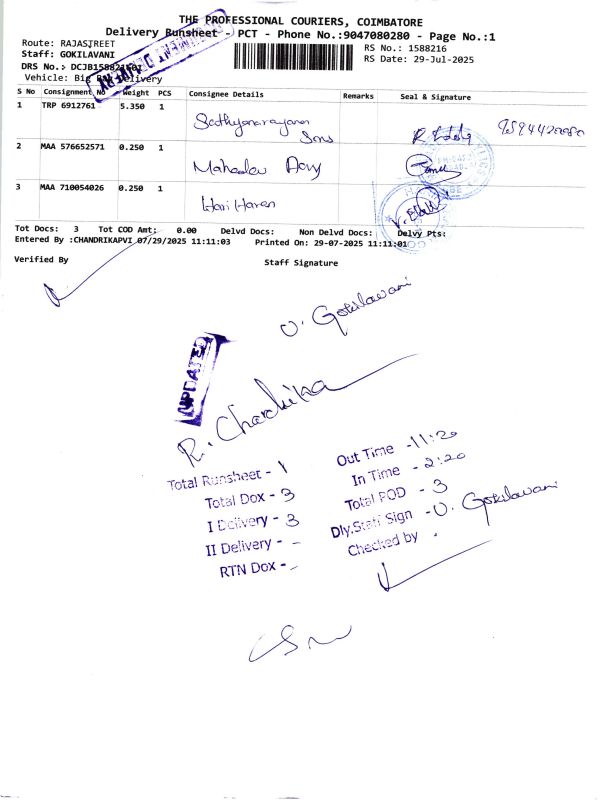 THE PROFESSIONAL COURIERS, COIMBATORE
Delivery Runsheet - PCT - Phone No.:9047080280 - Page No.:1
Route: RAJASTREET
RS No.: 1588216
Staff: GOKILAVANI
RS Date: 29-Jul-2025
DRS No.:
Vehicle: Big Bag Delivery
S No Consignment No Weight PCS Consignee Details Remarks Seal & Signature
1 TRP 6912761 5.350 1 Sathyanarayanan Sons
2 MAA 576652571 0.250 1 Mahadev
3 MAA 710054026 0.250 1 Hari Haran
Tot Docs: 3 Tot COD Amt: 0.00 Delvd Docs: Non Delvd Docs: Delvy Pts:
Entered By :CHANDRIKAPVI 07/29/2025 11:11:03 Printed On: 29-07-2025 11:11:01
Verified By Staff Signature
V. Gokilavani
UPDATED
Total Runsheet - 1
Total Dox - 3
I Delivery - 3
II Delivery - -
RTN Dox - -
Out Time - 11:20
In Time - 2:20
Total POD - 3
Dly.Staff Sign - V. Gokilavani
Checked by